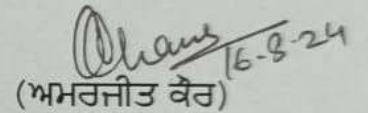 16-8-24
(ਅਮਰਜੀਤ ਕੌਰ)